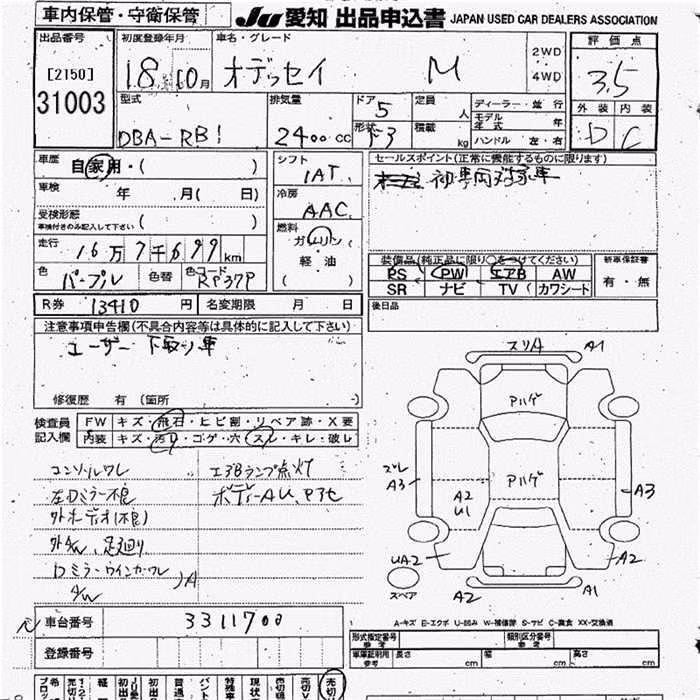 車内保管・守衛保管
JU 愛知 出品申込書 JAPAN USED CAR DEALERS ASSOCIATION
出品番号
[2150]
31003
初度登録年月
18 10月
車名・グレード
オデッセイ M
2WD
4WD
評価点
3.5
外装 内装
D C
型式
DBA-RB1
排気量
2400cc
ドア
5
形状
定員
人
積載
kg
ディーラー・並行
モデル
年式
ハンドル 左・右
車歴
自家用・( )
車検 年 月( 日)
受検形態
車検付きのみ記入して下さい ( )
走行
16万7千699km
色
パープル
色替
色コード
RP37P
シフト
IAT
冷房
AAC
燃料
ガソリン
軽油
( )
セールスポイント(正常に機能するものに限ります)
装備品(純正品に限り○をつけてください)
PS PW エアB AW
SR ナビ TV カワシート
新車保証書
有・無
R券 13410 円 名変期限 月 日
後日品
注意事項申告欄(不具合内容等は具体的に記入して下さい)
ユーザー下取り車
修復歴 有(箇所 )
検査員
記入欄
FW キズ・飛石・ヒビ割・リペア跡・X要
内装 キズ・汚れ・コゲ・穴・スレ・キレ・破レ
コンソールワレ
エアBランプ点灯
左Dミラー不良
外オーデオ(不良)
外AW、足廻り
Dミラーウインカーワレ
A/W
スリA A1
Aハゲ
Aハゲ
ズレ
A3
A2
U1
A3
UA2
A2
スペア
A2
A1
A-キズ E-エクボ U-凹み W-補修跡 S-サビ C-腐食 XX-交換済
車台番号 3311700
登録番号
形式指定番号
参考
類別区分番号
参考
車庫証明用
参考
長さ cm 幅 cm 高さ cm